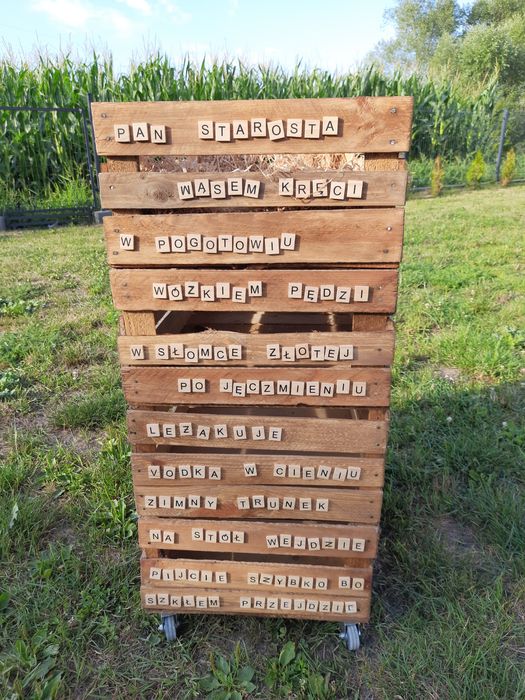 PAN STAROSTA
WĄSEM KRĘCI
W POGOTOWIU
WÓZKIEM PĘDZI
W SŁOMCE ZŁOTEJ
PO JĘCZMIENIU
LEŻAKUJE
VODKA W CIENIU
ZIMNY TRUNEK
NA STÓŁ WEJDZIE
PIJCIE SZYBKO BO
SZKŁEM PRZEJDZIE